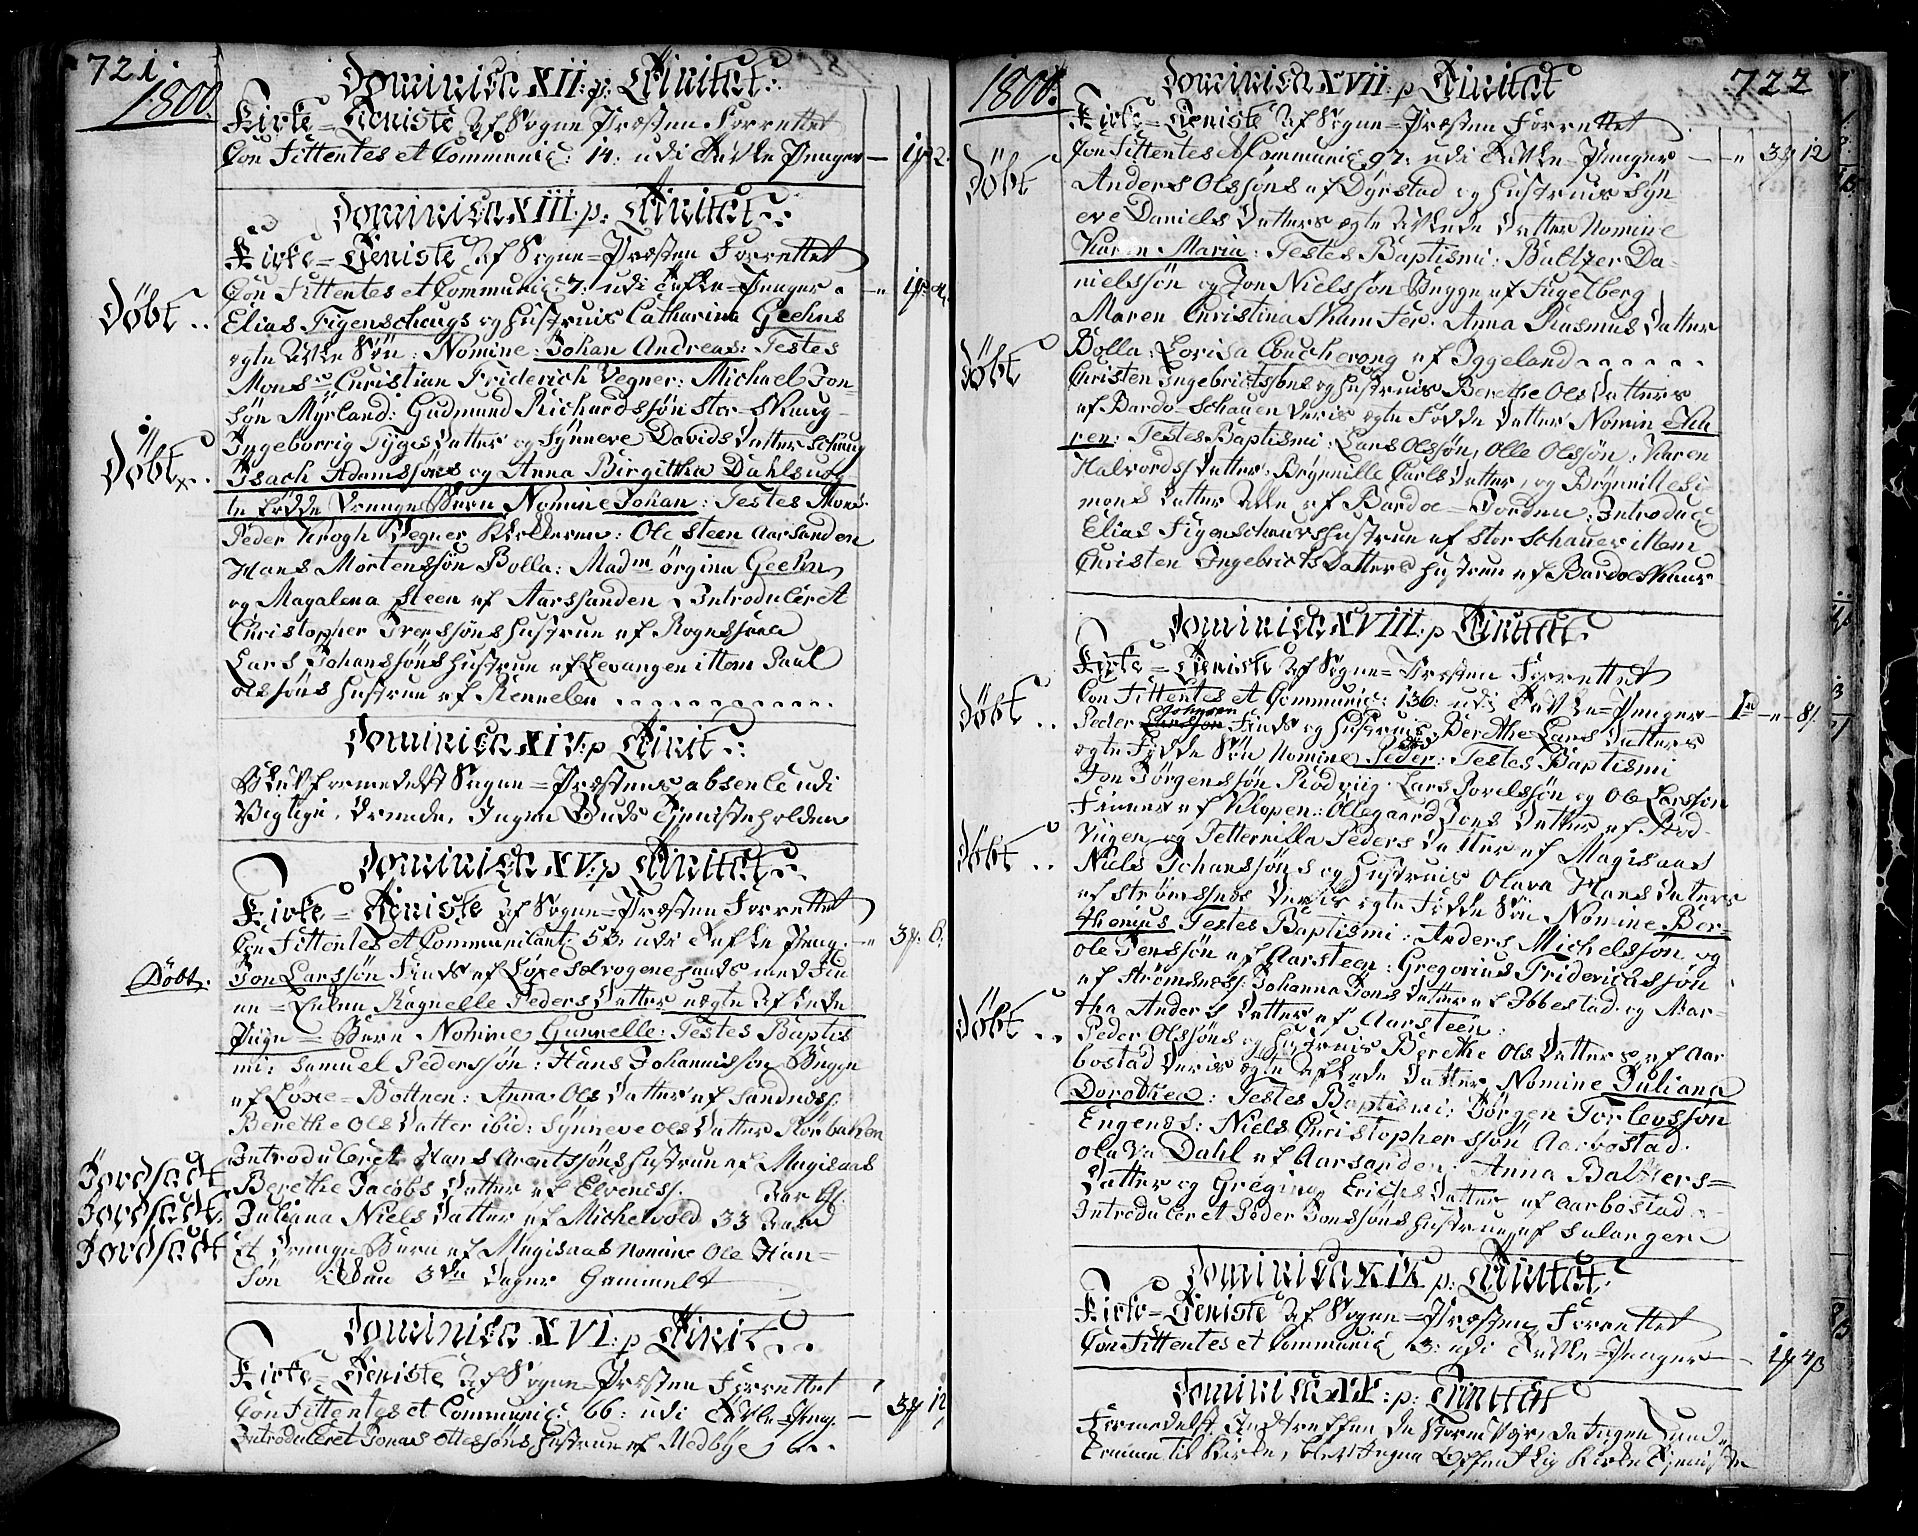 721.
1800.
Dominica XII: p: Trinitat:
Kirke=Tieniste Af Sogne Præsten Forrettet
Confittentes et Communic: 14. udi Tavle Penger — 1 2.
Dominica XIII: p: Trinitat:
Kirke=Tieniste Af Sogne=Præsten Forrettet
Confittentes et Communic: 7: udi Tavle=Penger
Døbt .. Elias Figenschougs og Hustrues Catharina Geelms
ægte Søn: Nomine: Johan Andreas: Testes
Monsr Christian Friderich Vegner: Michael Jon-
søn Myrland: Gudmund Richardssøn Stor-Skoug
Ingeborrig Tyges Datter og Synneve Davids Datter Schoug
Døbt .. Isach Adamssøns og Anna Birgittha Dahls uæg-
te fødde Drenge Barn Nomine Johan: Testes Mons.
Peder Krogh Vegner Ole Steen Aarsanden
Hans Mortenssøn Bolla: Madm Ørgina Geelm
og Magalena Steen af Aarssanden. Introduceret
Christopher Iverssøns Hustrue af
Lars Johanssøns Hustrue af Levangen ittem Paul
Olssøns Hustrue af
Dominica XIV: p Trinit:
Blev formedelst Sogne=Præstens absence udi
Vigtige Ærende, Ingen Guds Tjeniste holden
Dominica XV: p Trinitat:
Kirke=Tieniste Af Sogne=Præsten Forrettet
Confittentes et Communicant: 53: udi Tavle Peng. — 3 6.
Døbt. Jon Larssøn Finds af Løxe med Fin-
ne=Enken Ragnelle Peders Datter uægte
Pige=Barn Nomine Gunnelle: Testes Baptis-
mi: Samuel Pederssøn: Hans Johannissøn Begge
af Løxe=Bottnen: Anna Ols Datter af Sandness:
Berethe Ols Datter ibid: Synneve Ols Datter Rørbakken
Introduceret Hans Arentssøns Hustrue af Magisaas
Jordsadt Berethe Jacobs Datter af Elveness. Aar
Jordsadt. Juliana Niels Datter af Michelvold 33 Aar
Jordsadt Et Drenge Barn af Magisaas Nomine Ole Han-
søn 3de Dager Gammelt
Dominica XVI: p Trinit:
Kirke=Tieniste Af Sogne Præsten Forrettet
Confittentes et Communic: 66: udi Tavle=Peng. — 3 12
Introduceret Jonas Ottessøns Hustrue af Medbye
722
1800.
Dominica XVII: p Trinitat
Kirke=Tieniste Af Sogne=Præsten Forrettet
Confittentes et Communic 97: udi Tavle=Penger — 3 12
Døbt Anders Olssøns af Dyrstad og Hustrues Syn-
eve Daniels Datters ægte Datter Nomine
Karen Maria: Testes Baptismi: Baltzer Da-
nielssøn og Jon Nielssøn Begge af Fugelberg
Maren Christina Anna Rasmus Datter
Bolla: Lovisa Couscheron af Iggeland
Døbt Christen Ingebrictssøns og Hustrues Berethe Ols Datters
af Bardo-Schauen Deris ægte Fødde Datter Nomin Kaa-
ren: Testes Baptismi: Lars Olssøn, Olle Olssøn, Karen
Halvords Datter: Brynnille Carls Datter, og Brynnille Si-
mons Datter Alle af Bardoe=Jorden: Introduc
Elias Figenschaus Hustrue af Stor Schauer ittem
Christen Ingebricts Datters Hustrue af Bardoe Skauer
Dominica XVIII: p Trinitat
Kirke=Tieniste Af Sogne=Præsten Forrettet
Confittentes et Communic: 136: udi Tavle=Penger — 1 8
Døbt .. Peder Johnsen Finds og Hustrues Berethe Lars Datters
ægte Fødde Søn Nomine Peder: Testes Baptismi
Jon Jørgenssøn Rødviig. Lars Povelssøn og Ole Larssøn
Finner af Klopen: Ollegaard Jons Datter af Rød-
Viigen og Petternilla Peders Datter af Magisaas
Døbt .. Niels Johanssøns og Hustrues Olava Hans Datters
af Strømsnes Deris ægte Fødde Søn Nomine Ber-
thenius Testes Baptismi: Anders Michelssøn og
Ole Jenssøn af Aarsteen: Gregorius Fridericssøn
af Strømsness: Johanna Jons Datter af Ibbestad og Mar-
tha Anders Datter af Aarsteen:
Døbt .. Peder Olssøns og Hustrues Berethe Ols Datters af Aar-
bostad Deris ægte Datter Nomine Juliana
Dorothea: Testes Baptismi: Jørgen Torlevssøn
Engens: Niels Christopherssøn Aarbostad.
Olava Dahl af Aarsanden: Anna Baltzers=
Datter og Gregina Erichs Datter af Aarbostad.
Introduceret Peder Jonssøns Hustrue af Salangen
Dominica XIX p: Trinitat:
Kirke=Tieniste Af Sogne=Præsten Forrettet
Confittentes et Communic 3: udi Tavle=Penger — 1 4
Dominica XX: p: Trinitat
Formedelst de Storm Vejr, da Ingen kunde
komme til Kirke, blev Ingen Offentlig Kirke Tjeniste